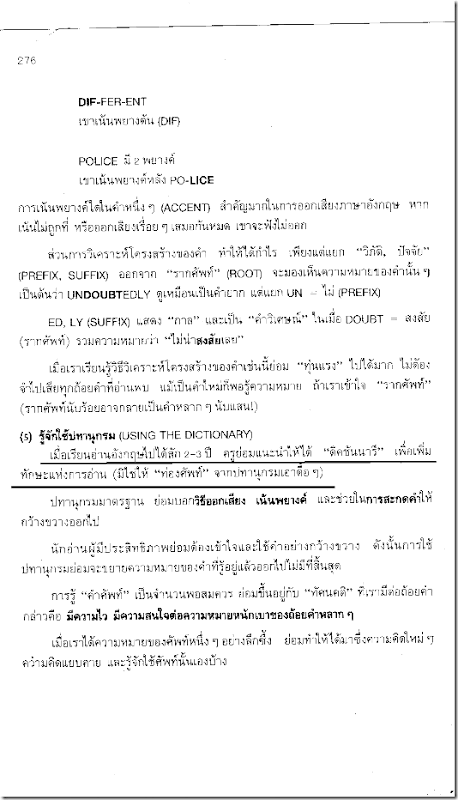 276
DIF-FER-ENT
เขาเน้นพยางต้น (DIF)
POLICE มี 2 พยางค์
เขาเน้นพยางค์หลัง PO-LICE
การเน้นพยางค์ใดในคำหนึ่ง ๆ (ACCENT) สำคัญมากในการออกเสียงภาษาอังกฤษ หาก
เน้นไม่ถูกที่ หรือออกเสียงเรื่อย ๆ เสมอกันหมด เขาจะฟังไม่ออก
ส่วนการวิเคราะห์โครงสร้างของคำ ทำให้ได้กำไร เพียงแต่แยก “วิภัติ, ปัจจัย”
(PREFIX, SUFFIX) ออกจาก “รากศัพท์” (ROOT) จะมองเห็นความหมายของคำนั้น ๆ
เป็นต้นว่า UNDOUBTEDLY ดูเหมือนเป็นคำยาก แต่แยก UN = ไม่ (PREFIX)
ED, LY (SUFFIX) แสดง “กาล” และเป็น “คำวิเศษณ์” ในเมื่อ DOUBT = สงสัย
(รากศัพท์) รวมความหมายว่า “ไม่น่าสงสัยเลย”
เมื่อเราเรียนรู้วิธีวิเคราะห์โครงสร้างของคำเช่นนี้ย่อม “ทุ่นแรง” ไปได้มาก ไม่ต้อง
จำไปเสียทุกถ้อยคำที่อ่านพบ แม้เป็นคำใหม่ก็พอรู้ความหมาย ถ้าเราเข้าใจ “รากศัพท์”
(รากศัพท์นับร้อยอาจกลายเป็นคำหลาก ๆ นับแสน!)
(5) รู้จักใช้ปทานุกรม (USING THE DICTIONARY)
เมื่อเรียนอ่านอังกฤษไปได้สัก 2-3 ปี ครูย่อมแนะนำให้ใช้ “ดิคชันนารี” เพื่อเพิ่ม
ทักษะแห่งการอ่าน (มิใช่ให้ “ท่องศัพท์” จากปทานุกรมเอาดื้อ ๆ)
ปทานุกรมมาตรฐาน ย่อมบอกวิธีออกเสียง เน้นพยางค์ และช่วยในการสะกดคำให้
กว้างขวางออกไป
นักอ่านผู้มีประสิทธิภาพย่อมต้องเข้าใจและใช้คำอย่างกว้างขวาง ดังนั้นการใช้
ปทานุกรมย่อมจะขยายความหมายของคำที่รู้อยู่แล้วออกไปไม่มีที่สิ้นสุด
การรู้ “คำศัพท์” เป็นจำนวนพอสมควร ย่อมขึ้นอยู่กับ “ทัศนคติ” ที่เรามีต่อถ้อยคำ
กล่าวคือ มีความไว มีความสนใจต่อความหมายหนักเบาของถ้อยคำหลาก ๆ
เมื่อเราได้ความหมายของศัพท์หนึ่ง ๆ อย่างลึกซึ้ง ย่อมทำให้ได้มาซึ่งความคิดใหม่ ๆ
ความคิดแยบคาย และรู้จักใช้ศัพท์นั้นเองบ้าง